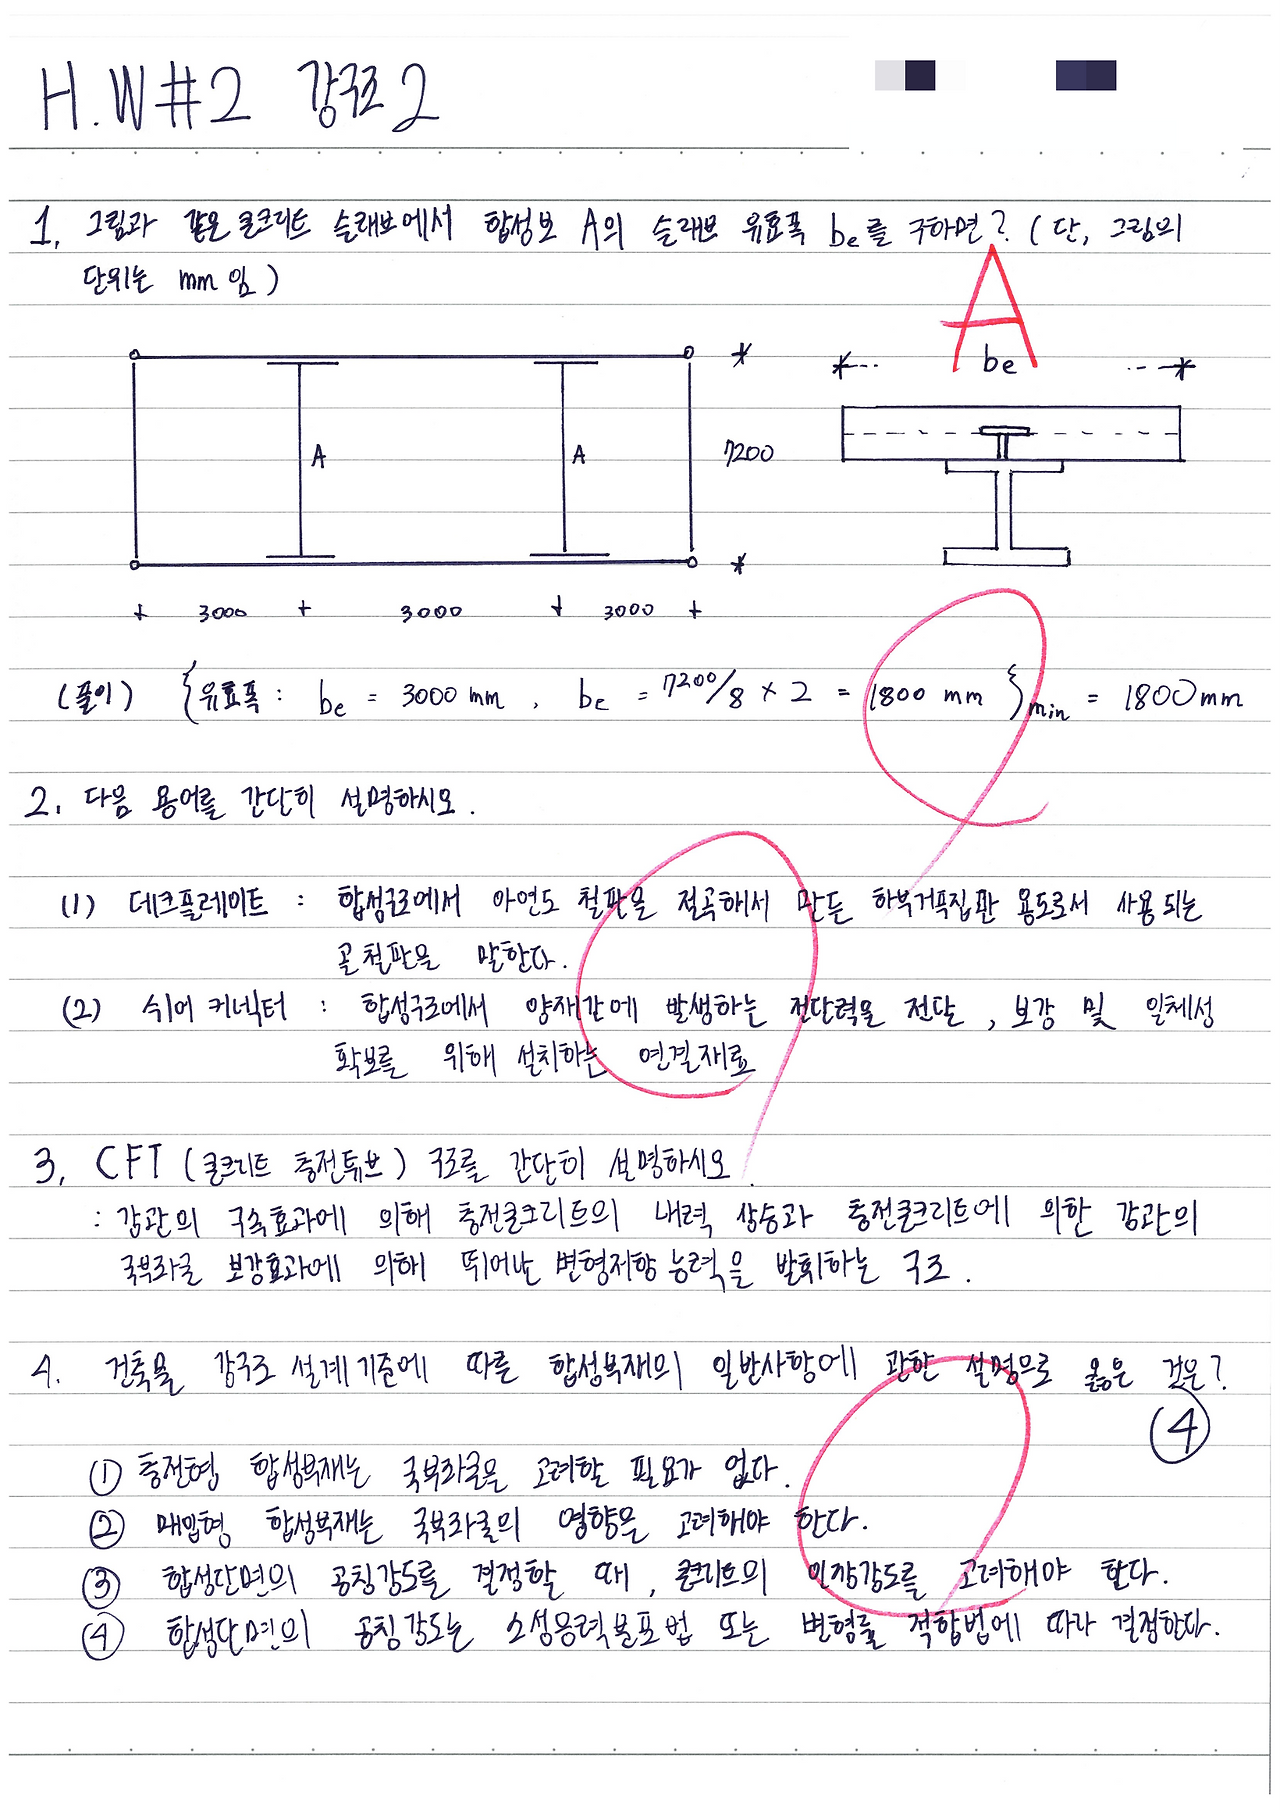 H.W#2 강구조2
1. 그림과 같은 콘크리트 슬래브에서 합성보 A의 슬래브 유효폭 be를 구하면? (단, 그림의
단위는 mm 임)
A
be
A
A
7200
3000
3000
3000
(풀이) { 유효폭 : be = 3000 mm , be = 7200/8 × 2 = 1800 mm }min = 1800mm
2. 다음 용어를 간단히 설명하시오.
(1) 데크플레이트 : 합성구조에서 아연도 철판을 절곡해서 만든 하부거푸집판 용도로서 사용되는
골철판을 말한다.
(2) 쉬어 커넥터 : 합성구조에서 양재간에 발생하는 전단력을 전달, 보강 및 일체성
확보를 위해 설치하는 연결재료
3. CFT (콘크리트 충전튜브) 구조를 간단히 설명하시오.
: 강관의 구속효과에 의해 충전콘크리트의 내력 상승과 충전콘크리트에 의한 강관의
국부좌굴 보강효과에 의해 뛰어난 변형저항 능력을 발휘하는 구조.
4. 건축물 강구조 설계기준에 따른 합성부재의 일반사항에 관한 설명으로 옳은 것은?
④
① 충전형 합성부재는 국부좌굴을 고려할 필요가 없다.
② 매입형 합성부재는 국부좌굴의 영향을 고려해야 한다.
③ 합성단면의 공칭강도를 결정할 때, 콘크리트의 인장강도를 고려해야 한다.
④ 합성단면의 공칭강도는 소성응력분포법 또는 변형률 적합법에 따라 결정한다.